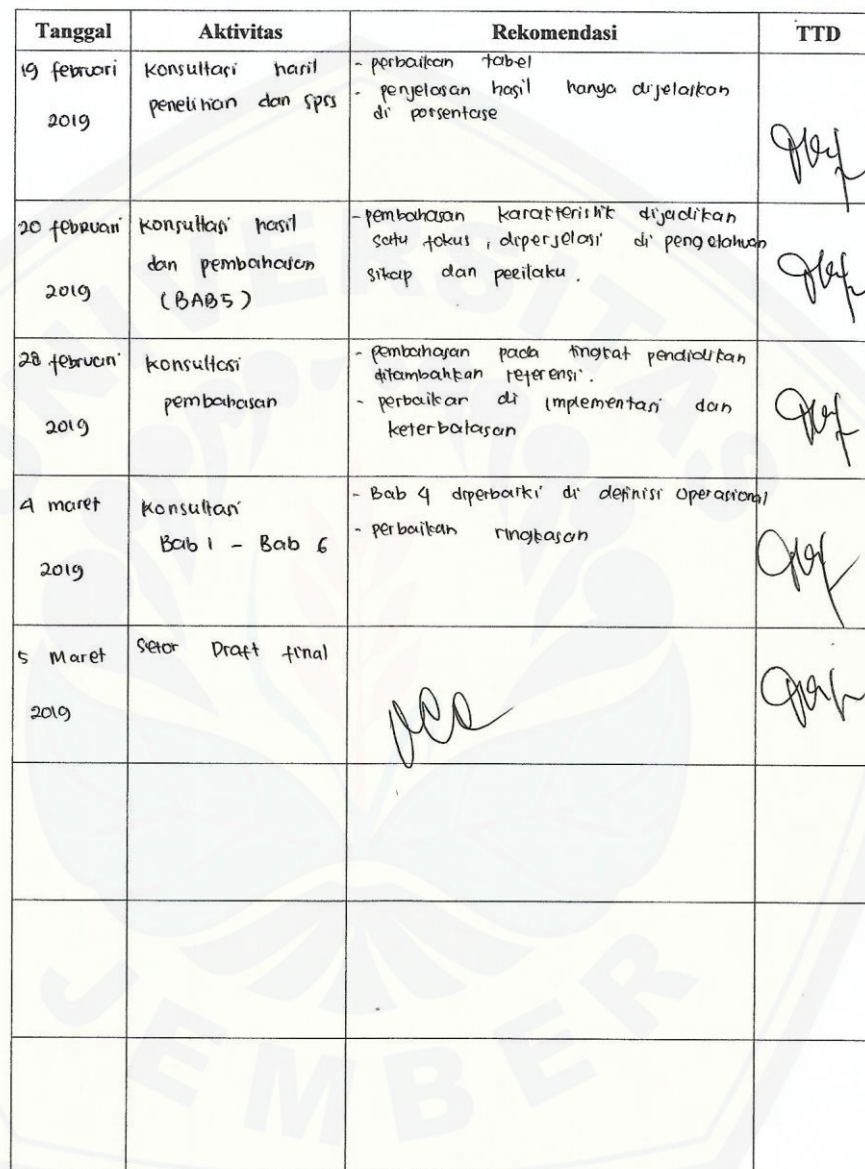 Tanggal Aktivitas Rekomendasi TTD
19 februari
2019
konsultasi hasil
penelitian dan spss
- perbaikan tabel
- penjelasan hasil hanya dijelaskan
di porsentase
20 februari
2019
konsultasi hasil
dan pembahasan
(BAB5)
- pembahasan karakteristik dijadikan
satu fokus, diperjelasi di pengetahuan
sikap dan perilaku.
28 februari
2019
konsultasi
pembahasan
- pembahasan pada tingkat pendidikan
ditambahkan referensi.
- perbaikan di implementasi dan
keterbatasan
4 maret
2019
konsultasi
Bab 1 - Bab 6
- Bab 4 diperbaiki di definisi Operasional
- perbaikan ringkasan
5 Maret
2019
Setor Draft final
UNIVERSITAS
JEMBER